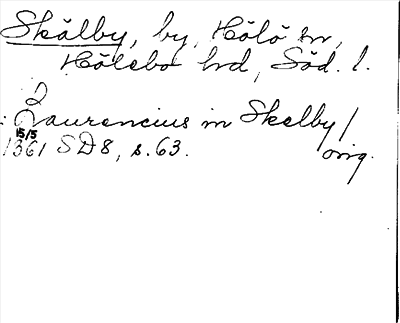 Skälby, by, Hölö sn,
Hölebo hd, Söd. l.
Laurencius in Skelby /
15/5
1361 SD 8, s. 63. orig.